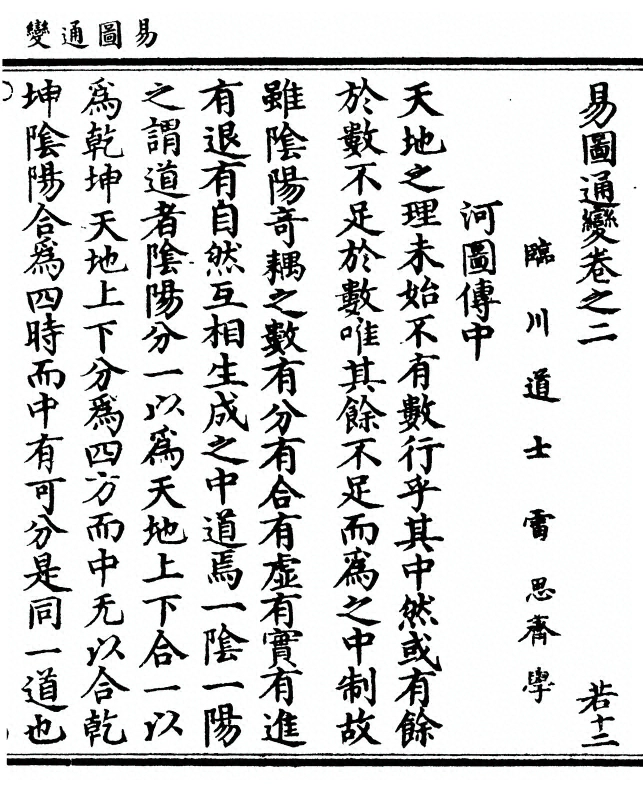 易圖通變
易圖通變卷之二 若十二
臨川道士雷思齊學
河圖傳中
天地之理未始不有數行乎其中然或有餘
於數不足於數唯其餘不足而爲之中制故
雖陰陽奇耦之數有分有合有虛有實有進
有退有自然互相生成之中道焉一陰一陽
之謂道者陰陽分一以爲天地上下合一以
爲乾坤天地上下分爲四方而中无以合乾
坤陰陽合爲四時而中有可分是同一道也